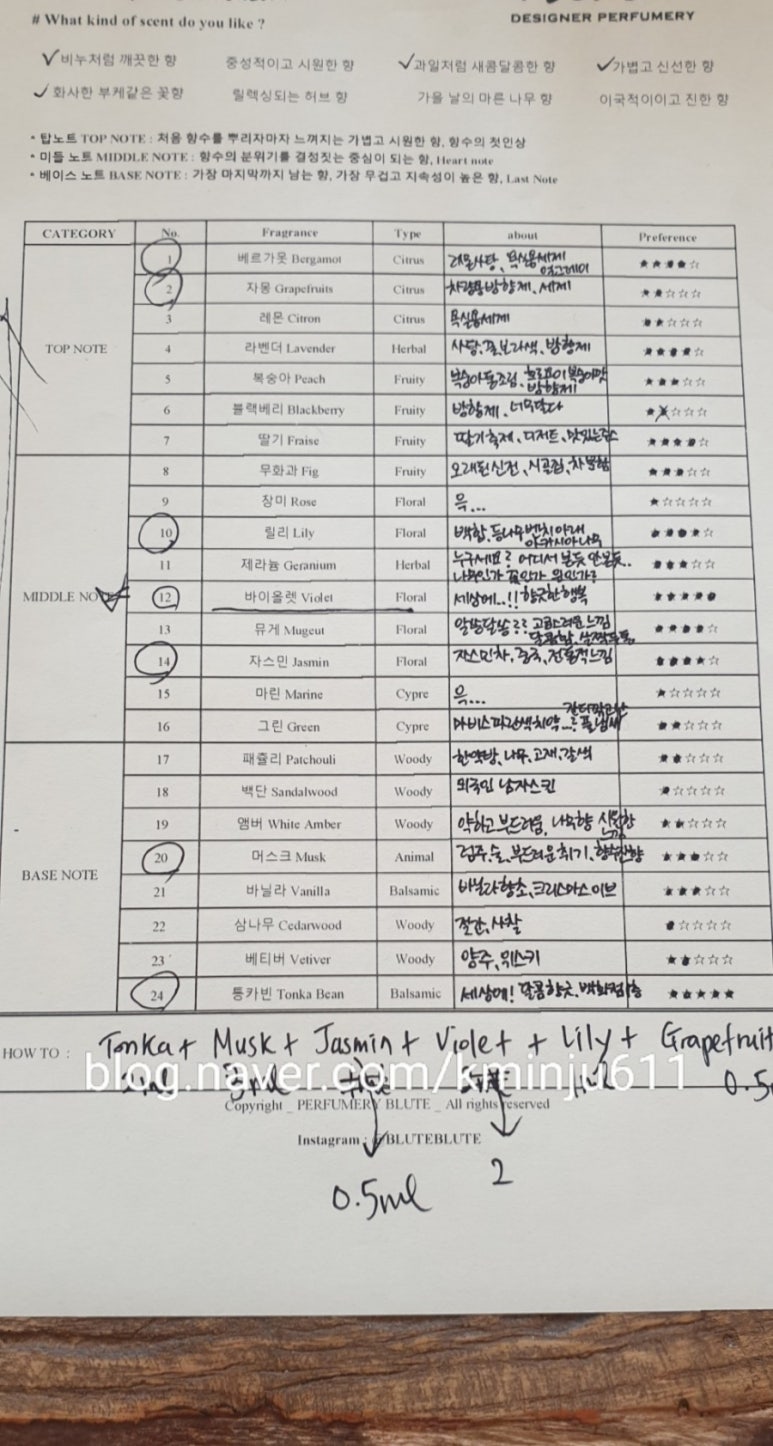 # What kind of scent do you like ?
DESIGNER PERFUMERY
✓비누처럼 깨끗한 향 중성적이고 시원한 향 ✓과일처럼 새콤달콤한 향 ✓가볍고 신선한 향
✓화사한 부케같은 꽃향 릴렉싱되는 허브 향 가을 날의 마른 나무 향 이국적이이고 진한 향
* 탑노트 TOP NOTE : 처음 향수를 뿌리자마자 느껴지는 가볍고 시원한 향, 향수의 첫인상
* 미들 노트 MIDDLE NOTE : 향수의 분위기를 결정짓는 중심이 되는 향, Heart note
* 베이스 노트 BASE NOTE : 가장 마지막까지 남는 향, 가장 무겁고 지속성이 높은 향, Last Note
CATEGORY No. Fragrance Type about Preference
TOP NOTE
1 베르가못 Bergamot Citrus 레몬사탕, 욕실용세제 ★★★★☆
2 자몽 Grapefruits Citrus 차량용방향제, 세제 ★★☆☆☆
3 레몬 Citron Citrus 욕실용세제 ★★☆☆☆
4 라벤더 Lavender Herbal 사탕, 보라색, 방향제 ★★★★☆
5 복숭아 Peach Fruity 복숭아통조림, 복숭아맛 방향제 ★★★☆☆
6 블랙베리 Blackberry Fruity 방향제, 너무달다 ★☆☆☆
7 딸기 Fraise Fruity 딸기축제, 디저트, 맛있는쥬스 ★★★★☆
MIDDLE NOTE
8 무화과 Fig Fruity 오래된신전, 시골집, 차분함 ★★★☆☆
9 장미 Rose Floral 윽... ★☆☆☆☆
10 릴리 Lily Floral 백합, 등나무벤치아래 아카시아나무 ★★★★☆
11 제라늄 Geranium Herbal 누구세요? 어디서 본듯 안본듯.. 나무인가 꽃인가 뭐인가? ★★★☆☆
12 바이올렛 Violet Floral 세상에..!! 향긋한행복 ★★★★★
13 뮤게 Mugeut Floral 알쏭달쏭?? 고급스러운느낌 달콤함, ★★★★☆
14 자스민 Jasmin Floral 자스민차, 중국, 전통적느낌 ★★★★☆
15 마린 Marine Cypre 윽... ★☆☆☆☆
16 그린 Green Cypre 마비스파란색치약...? 풀냄새 ★★☆☆☆
BASE NOTE
17 패츌리 Patchouli Woody 한약방, 나무, 고재, 갈색 ★★☆☆☆
18 백단 Sandalwood Woody 외국인 남자스킨 ★☆☆☆☆
19 앰버 White Amber Woody 약하고 부드러움, 나무향 시원한 느낌 ★★☆☆☆
20 머스크 Musk Animal 검주, 술, 부드러운취기, ★★★☆☆
21 바닐라 Vanilla Balsamic 바닐라향초, 크리스마스이브 ★★★☆☆
22 삼나무 Cedarwood Woody 절간, 사찰 ★☆☆☆☆
23 베티버 Vetiver Woody 양주, 위스키 ★★☆☆☆
24 통카빈 Tonka Bean Balsamic 세상에! 달콤향긋, 백화점1층 ★★★★★
HOW TO : Tonka + Musk + Jasmin + Violet + + Lily + Grapefruit
2ml 3ml 1ml 0.5
blog.naver.com/kminju611
Copyright _ PERFUMERY BLUTE _ All rights reserved
Instagram : @BLUTEBLUTE
0.5ml 2